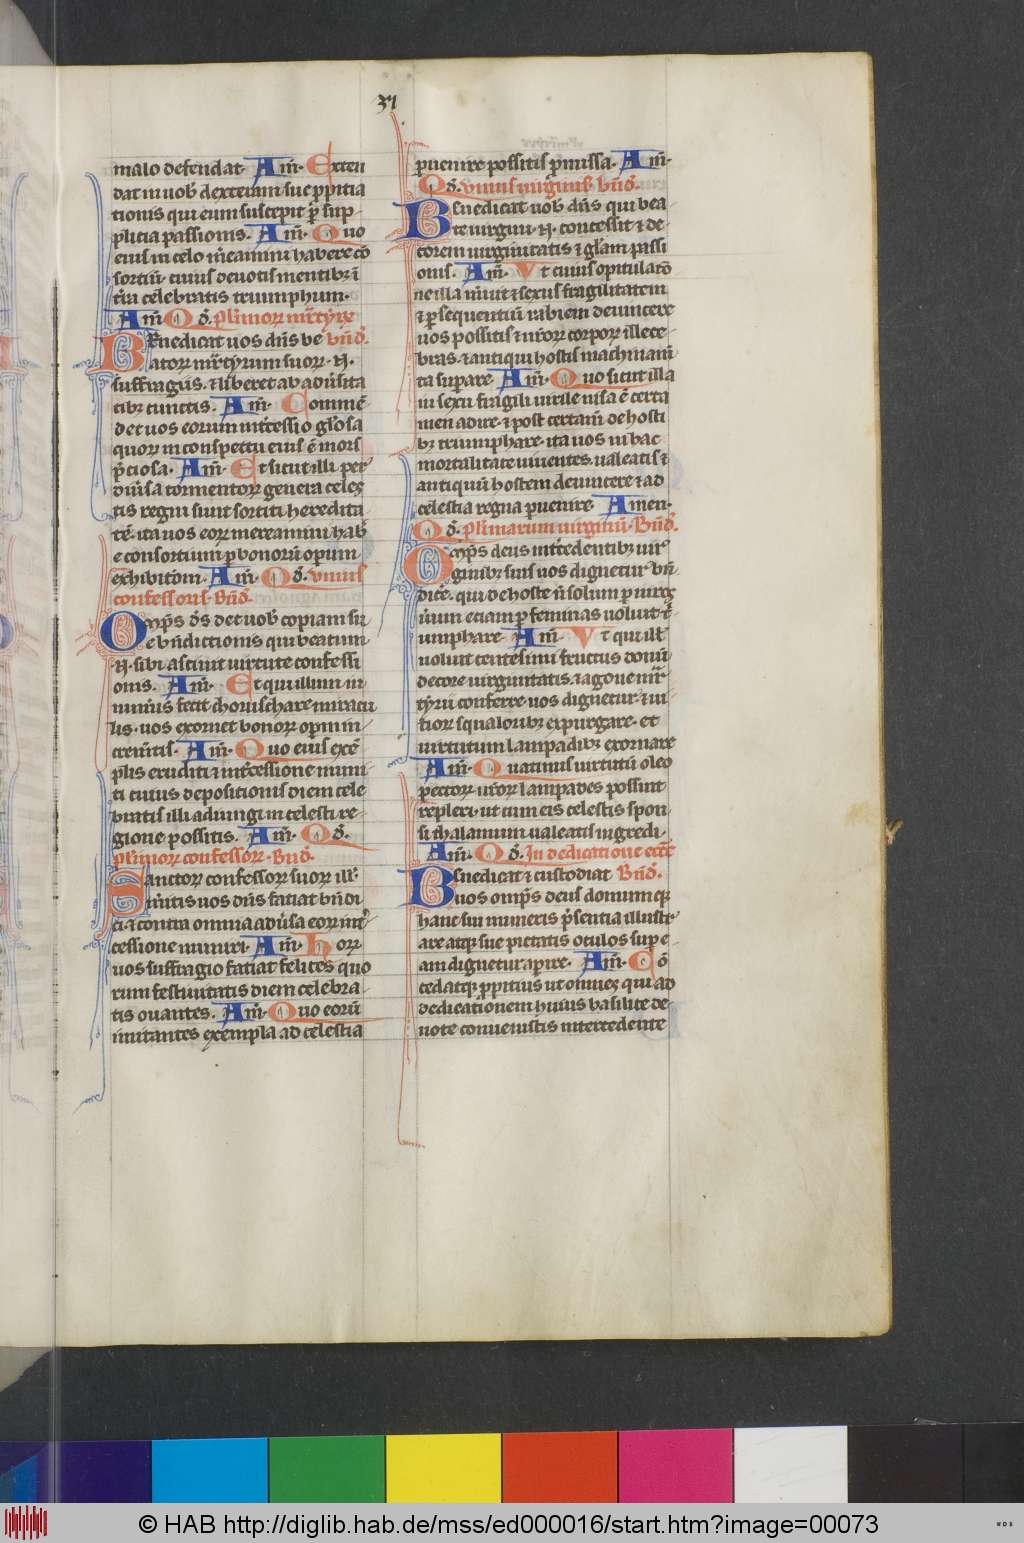 31
malo defendat. Am̄. Exten
dat in uob̄ dexteram sue p̱pitia
tionis qui eum suscepit p̱ sup
plicia passionis. Am̄. Quo
eius in celo m̄eamini habere cō
sortiū. cuius deuotis mentibꝫ ī
tr̄a celebratis triumphum.
Am̄ Qd̄. pl'imorꝝ mr̄tyrꝝ
Benedicat uos dn̄s be bn̄d.
atorꝝ mr̄tyrum suorꝝ. N.
suffragiis. ⁊ liberet ab adu'sita
tibꝫ cunctis. Am̄. Commē
det uos eorum int'cessio gl'osa
quorꝝ in conspectu eius ē mors
p̄ciosa. Am̄. Et sicut illi per
diu'sa tormentorꝝ genera celes
tis regni sunt sortiti heredita
tē. ita uos eorꝝ mereamini hab
e consortium p̱ bonorū operum
exhibitōm. Am̄. Qd̄. unius
confessoris. Bn̄d.
Omp̄s d̄s det uob̄ copiam su
e bn̄dictionis qui beatum
.N. sibi asciuit uirtute confessi
onis. Am̄. Et qui illum in
nimiis fecit choruschare miracu
lis. uos exornet bonorꝝ operū in
crem̄tis. Am̄. Quo eius exē
plis eruditi ⁊ int'cessione muni
ti cuius depositionis diem cele
bratis illi adiungi in celesti re
gione possitis. Am̄. Qd̄.
pl'imorꝝ confessorꝝ. Bn̄d.
Sanctorꝝ confessorꝝ suorꝝ ill'.
m̄itis uos dn̄s faciat bn̄di
ci ⁊ contra omnia adu'sa eorꝝ int'
cessione muniri. Am̄. Horꝝ
uos suffragio faciat felices quo
rum festiuitatis diem celebra
tis ouantes. Am̄. Quo eorū
imitantes exempla ad celestia
p̱uenire possitis p̱missa. Am̄.
Qd̄. unius uirginis. bn̄d.
Benedicat uob̄ dn̄s qui bea
te uirgini .N. concessit ⁊ de
corem uirginitatis ⁊ gl'am passi
onis. Am̄. Vt cuius opitulatō
ne illa m̄uit ⁊ sexus fragilitatem
⁊ p̱sequentiū rabiem deuincere
uos possitis ⁊ ur̄orꝝ corporꝝ illece
bras. ⁊ antiqui hostis machinam̄
ta sup̱are. Am̄. Quo sicut illa
in sexu fragili uirile nisa ē certa
men adire. ⁊ post certam̄ de hosti
bꝫ triumphare. ita uos in hac
mortalitate uiuentes. ualeatis ⁊
antiquū hostem deuincere ⁊ ad
celestia regna p̱uenire. Amen.
Qd̄. pl'imarum uirginū. Bn̄d.
Omp̄s deus int'cedentibꝫ uir
ginibꝫ suis uos dignetur bn̄
dic'e. qui de hoste n̄ solum p̱ uiros
u'um etiam p̱ feminas uoluit t'
umphare. Am̄. Vt qui ill'
uoluit centesimi fructus donū
decore uirginitatis. ⁊ agone mr̄
tyrii conferre. uos dignetur. ⁊ ui
tiorꝝ squaloribꝫ expurgare. et
uirtutum lampadibꝫ exornare
Am̄. Quatinus uirtutū oleo
pectorꝝ ur̄orꝝ lampades possint
repleri. ut cum eis celestis spon
si thalamum ualeatis ingredi.
Am̄. Qd̄. In dedicatione eccl'e
Benedicat ⁊ custodiat Bn̄d.
uos omp̄s deus domumqꝫ
hanc sui muneris p̄sentia illustr
are atqꝫ sue pietatis oculos sup̱ e
am dignetur ap̱ire. Am̄. Cō
cedatqꝫ p̱pitius ut omnes qui ad
dedicationem huius basilice de
uote conuenistis intercedente
© HAB http://diglib.hab.de/mss/ed000016/start.htm?image=00073